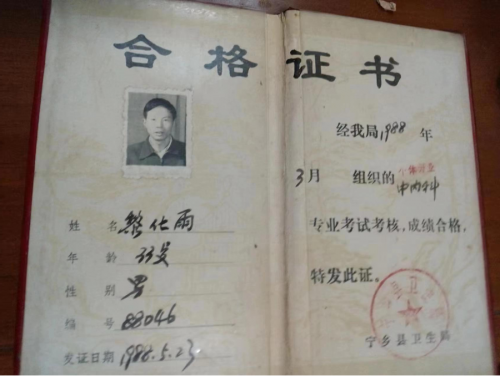 合格证书
姓名 黎仕雨
年龄 33岁
性别 男
编号 88046
发证日期 1988.5.23
经我局1988年
3月 组织的 个体开业 中内科
专业考试考核,成绩合格,
特发此证。
宁乡县卫生局